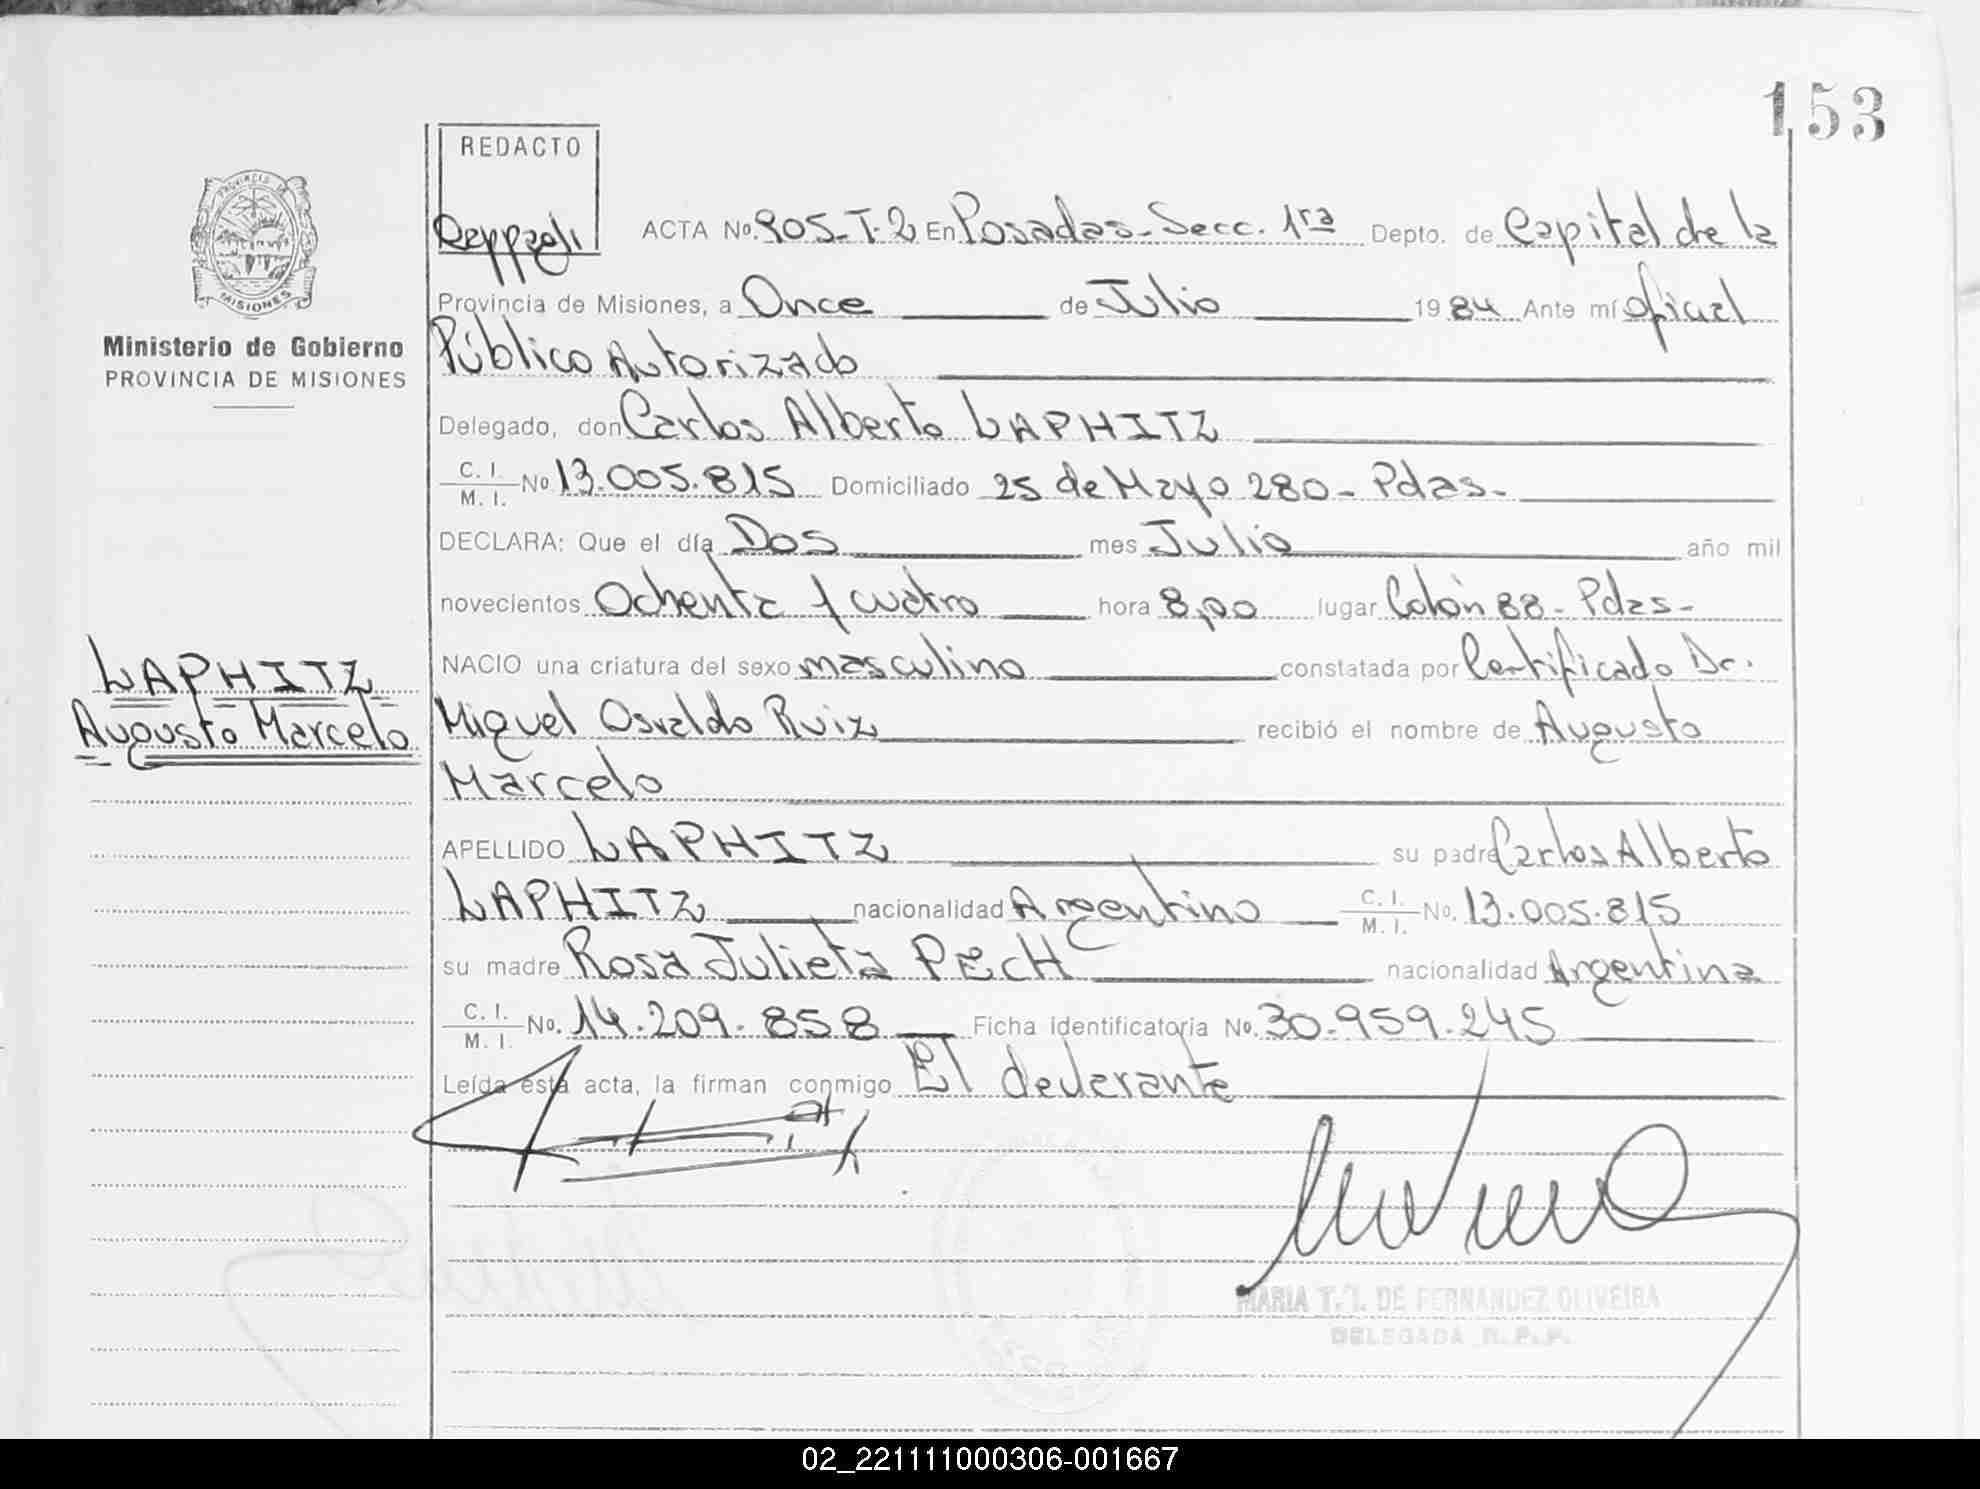 153
REDACTO
PROVINCIA DE
MISIONES
Ministerio de Gobierno
PROVINCIA DE MISIONES
ACTA No. 905-T.2 En Posadas-Secc. 1ra Depto. de Capital de la
Provincia de Misiones, a Once de Julio 1984 Ante mí oficial
Público Autorizado
Delegado, don Carlos Alberto LAPHITZ
C. I. / M. I. No 13.005.815 Domiciliado 25 de Mayo 280- Pdas-
DECLARA: Que el día Dos mes Julio año mil
novecientos Ochenta y cuatro hora 8,00 lugar Colón 88- Pdas-
NACIO una criatura del sexo masculino constatada por Certificado Dr.
LAPHITZ
Augusto Marcelo
Miguel Osvaldo Ruiz recibió el nombre de Augusto
Marcelo
APELLIDO LAPHITZ su padre Carlos Alberto
LAPHITZ nacionalidad Argentino C. I. / M. I. No. 13.005.815
su madre Rosa Julieta PECH nacionalidad Argentina
C. I. / M. I. No. 14.209.858 Ficha identificatoria No. 30.959.245
Leída esta acta, la firman conmigo El declarante
MARIA T. I. DE FERNANDEZ OLIVEIRA
DELEGADA R.P.P.
02_221111000306-001667